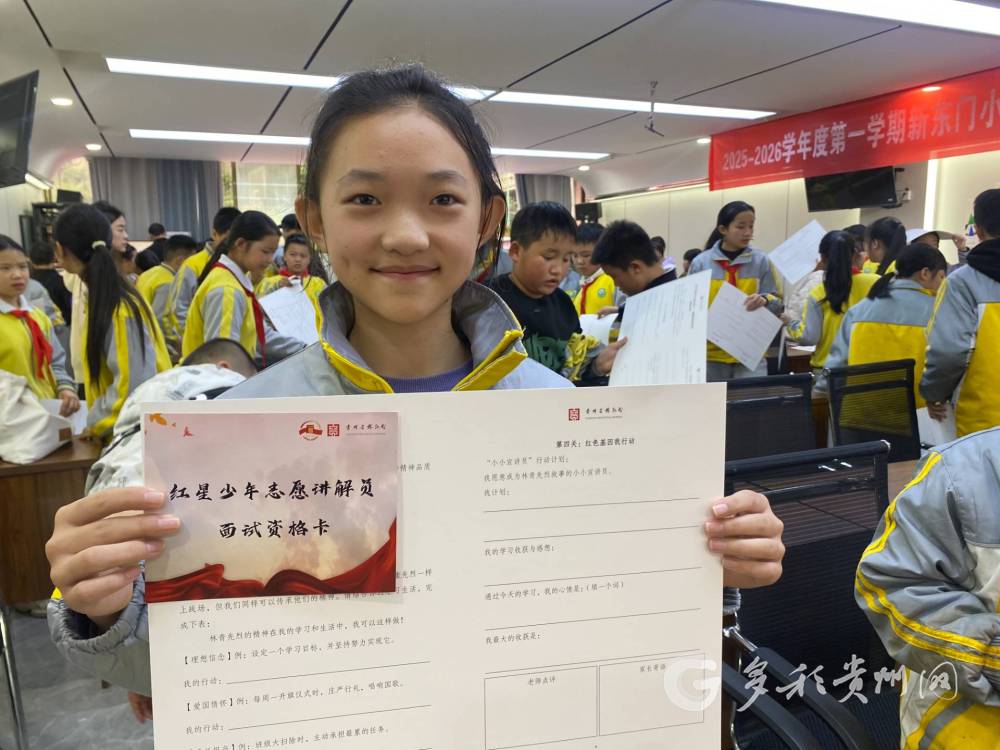 2025-2026学年度第一学期新东门小
红星少年志愿讲解员
面试资格卡
精神品质
上战场，但我们同样可以传承他们的精神。请结合自己的学习生活，完
成下表：
林青先烈的精神在我的学习和生活中，我可以这样做！
【理想信念】例：设定一个学习目标，并坚持努力实现它。
我的行动：
【爱国情怀】例：每周一升旗仪式时，庄严行礼，唱响国歌。
我的行动：
例：班级大扫除时，主动承担最累的任务。
贵州省博物馆
第四关：红色基因我行动
“小小宣讲员”行动计划：
我愿意成为林青先烈故事的小小宣讲员。
我计划：
我的学习收获与感想：
通过今天的学习，我的心情是：（填一个词）
我最大的收获是：
老师点评
家长寄语
多彩贵州网